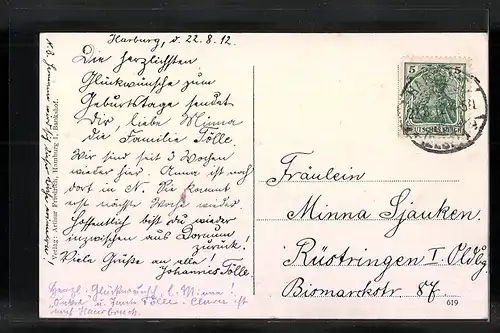 Harburg, d. 22.8.12.
Die herzlichsten
Glückwünsche zum
Geburtstage sendet
Dir, liebe Minna
die Familie Tölle.
Wir sind seit 3 Wochen
wieder hier. Anna ist noch
dort in N. Sie kommt
erst nächste Woche wieder.
Hoffentlich bist du wieder
inzwischen aus Dornum
zurück!
Viele Grüße an alle!
Johannes Tölle.
Herzl. Glückwunsch, l. Minna!
Onkel u. Tante Tölle. Clara ist
Verlag: Arthur Friedrich, Hamburg
5 5
Fräulein
Minna Sjauken.
Rüstringen I. Oldbg.
Bismarckstr 87.
619